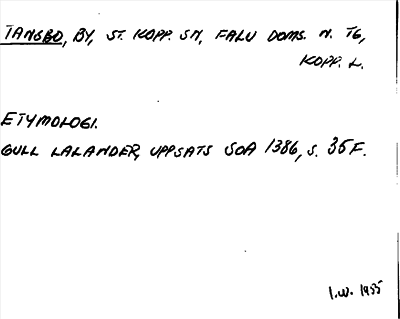 TANSBO, BY, ST. KOPP. SN, FALU DOMS. N. TG,
KOPP. L.
ETYMOLOGI.
GULL LALANDER, UPPSATS SOA 1386, S. 35 F.
I.W. 1955